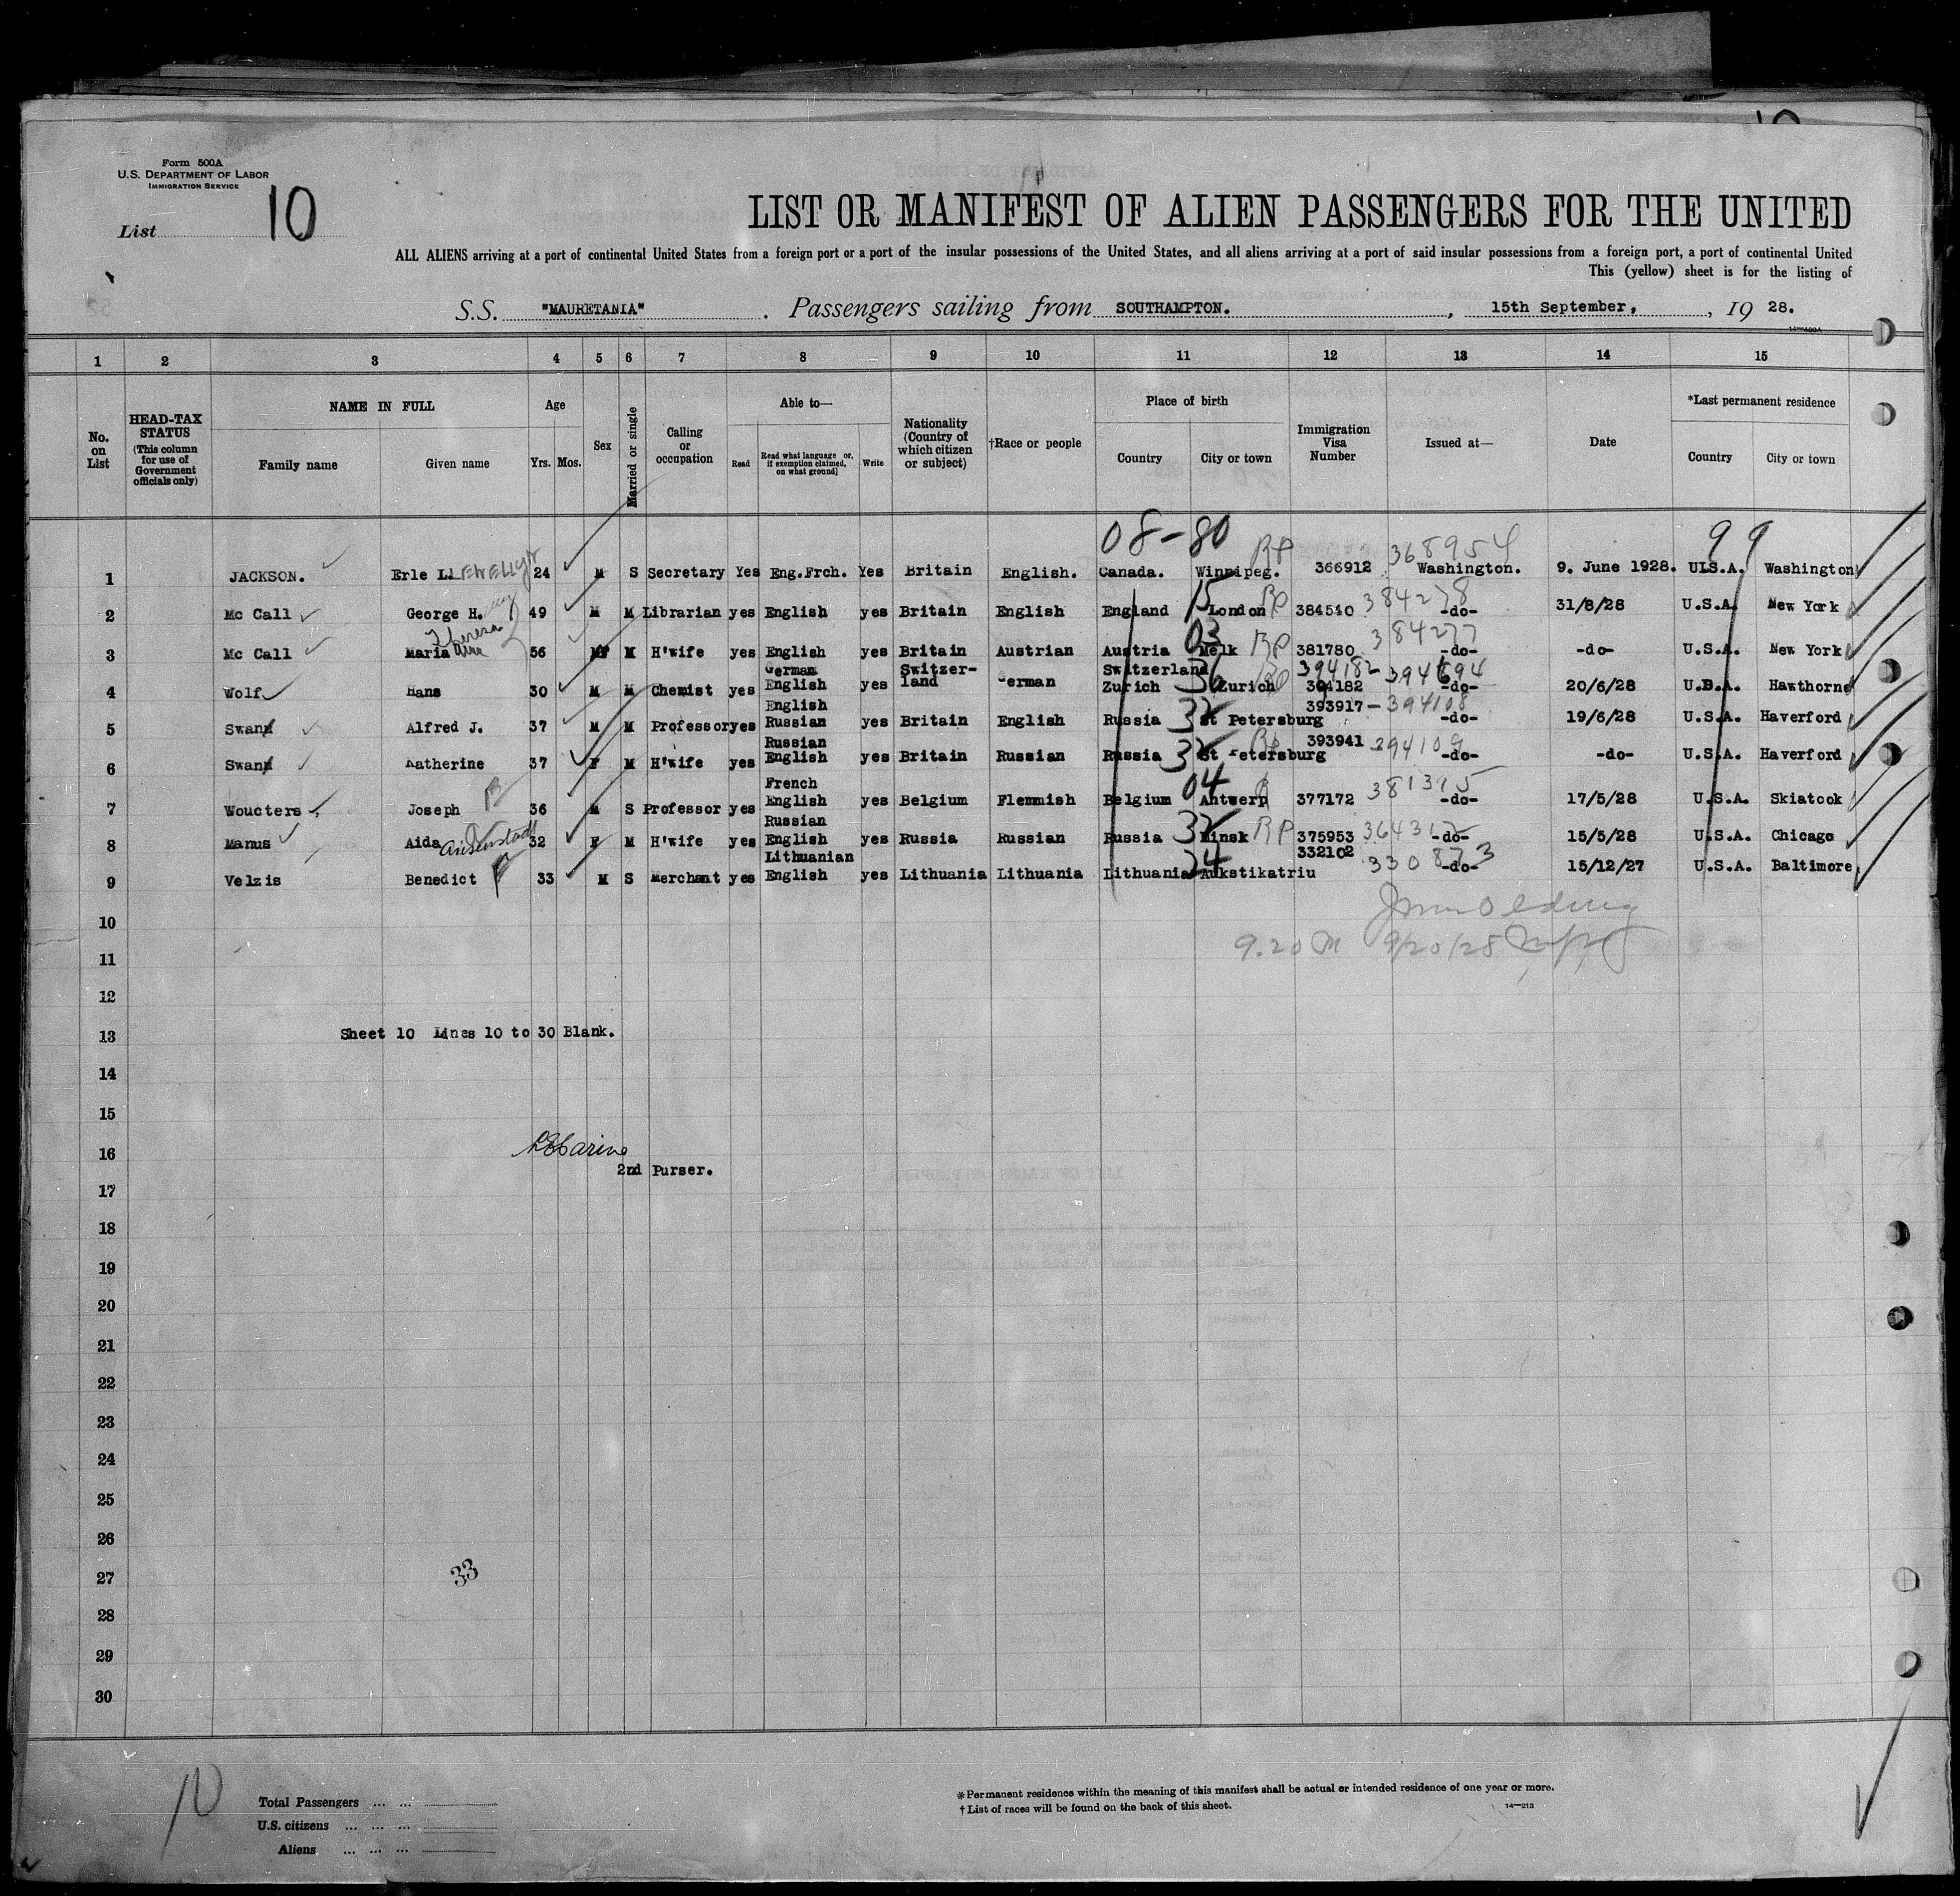 Form 500A
U.S. DEPARTMENT OF LABOR
IMMIGRATION SERVICE
List 10
LIST OR MANIFEST OF ALIEN PASSENGERS FOR THE UNITED
ALL ALIENS arriving at a port of continental United States from a foreign port or a port of the insular possessions of the United States, and all aliens arriving at a port of said insular possessions from a foreign port, a port of continental United
This (yellow) sheet is for the listing of
S.S. "MAURETANIA" . Passengers sailing from SOUTHAMPTON. , 15th September, , 19 28.
14—480A
1 2 3 4 5 6 7 8 9 10 11 12 13 14 15
No. on List
HEAD-TAX STATUS (This column for use of Government officials only)
NAME IN FULL
Family name Given name
Age
Yrs. Mos.
Sex
Married or single
Calling or occupation
Able to—
Read Read what language or, if exemption claimed, on what ground] Write
Nationality (Country of which citizen or subject)
†Race or people
Place of birth
Country City or town
Immigration Visa Number
Issued at—
Date
*Last permanent residence
Country City or town
08-80 99
1 JACKSON. Erle L.LEWELLYN 24 M S Secretary Yes Eng.Frch. Yes Britain English. Canada. Winnipeg. RP 366912 368954 Washington. 9. June 1928. U.S.A. Washington
2 Mc Call George H. 49 M M Librarian yes English yes Britain English England 15 London RP 384540 384278 -do- 31/8/28 U.S.A. New York
3 Mc Call Maria Theresa 56 F M H'wife yes English yes Britain Austrian Austria 03 Melk RP 381780 384277 -do- -do- U.S.A. New York
4 Wolf Hans 30 M M Chemist yes German English yes Switzer-land German Switzerland Zurich 36 Zurich RP 394182 394182 - 394694 -do- 20/6/28 U.S.A. Hawthorne
5 Swann Alfred J. 37 M M Professor yes English Russian yes Britain English Russia 32 St Petersburg 393917 - 394108 -do- 19/6/28 U.S.A. Haverford
6 Swann Katherine 37 F M H'wife yes Russian English yes Britain Russian Russia 32 St Petersburg RP 393941 394109 -do- -do- U.S.A. Haverford
7 Woucters Joseph 36 M S Professor yes French English yes Belgium Flemmish Belgium 04 Antwerp 377172 381315 -do- 17/5/28 U.S.A. Skiatook
8 Manus Aida 32 F M H'wife yes Russian English yes Russia Russian Russia 32 Minsk RP 375953 -do- 15/5/28 U.S.A. Chicago
9 Velzis Benedict 33 M S Merchant yes Lithuanian English yes Lithuania Lithuania Lithuania 24 Aukstikatriu 332102 330873 -do- 15/12/27 U.S.A. Baltimore
10
9.20 M 9/20/28
11
12
13 Sheet 10 Lines 10 to 30 Blank.
14
15
16
2nd Purser.
17
18
19
20
21
22
23
24
25
26
27 33
28
29
30
10
Total Passengers ... ...
U.S. citizens ... ... ...
Aliens ... ... ...
* Permanent residence within the meaning of this manifest shall be actual or intended residence of one year or more.
† List of races will be found on the back of this sheet.
14—213